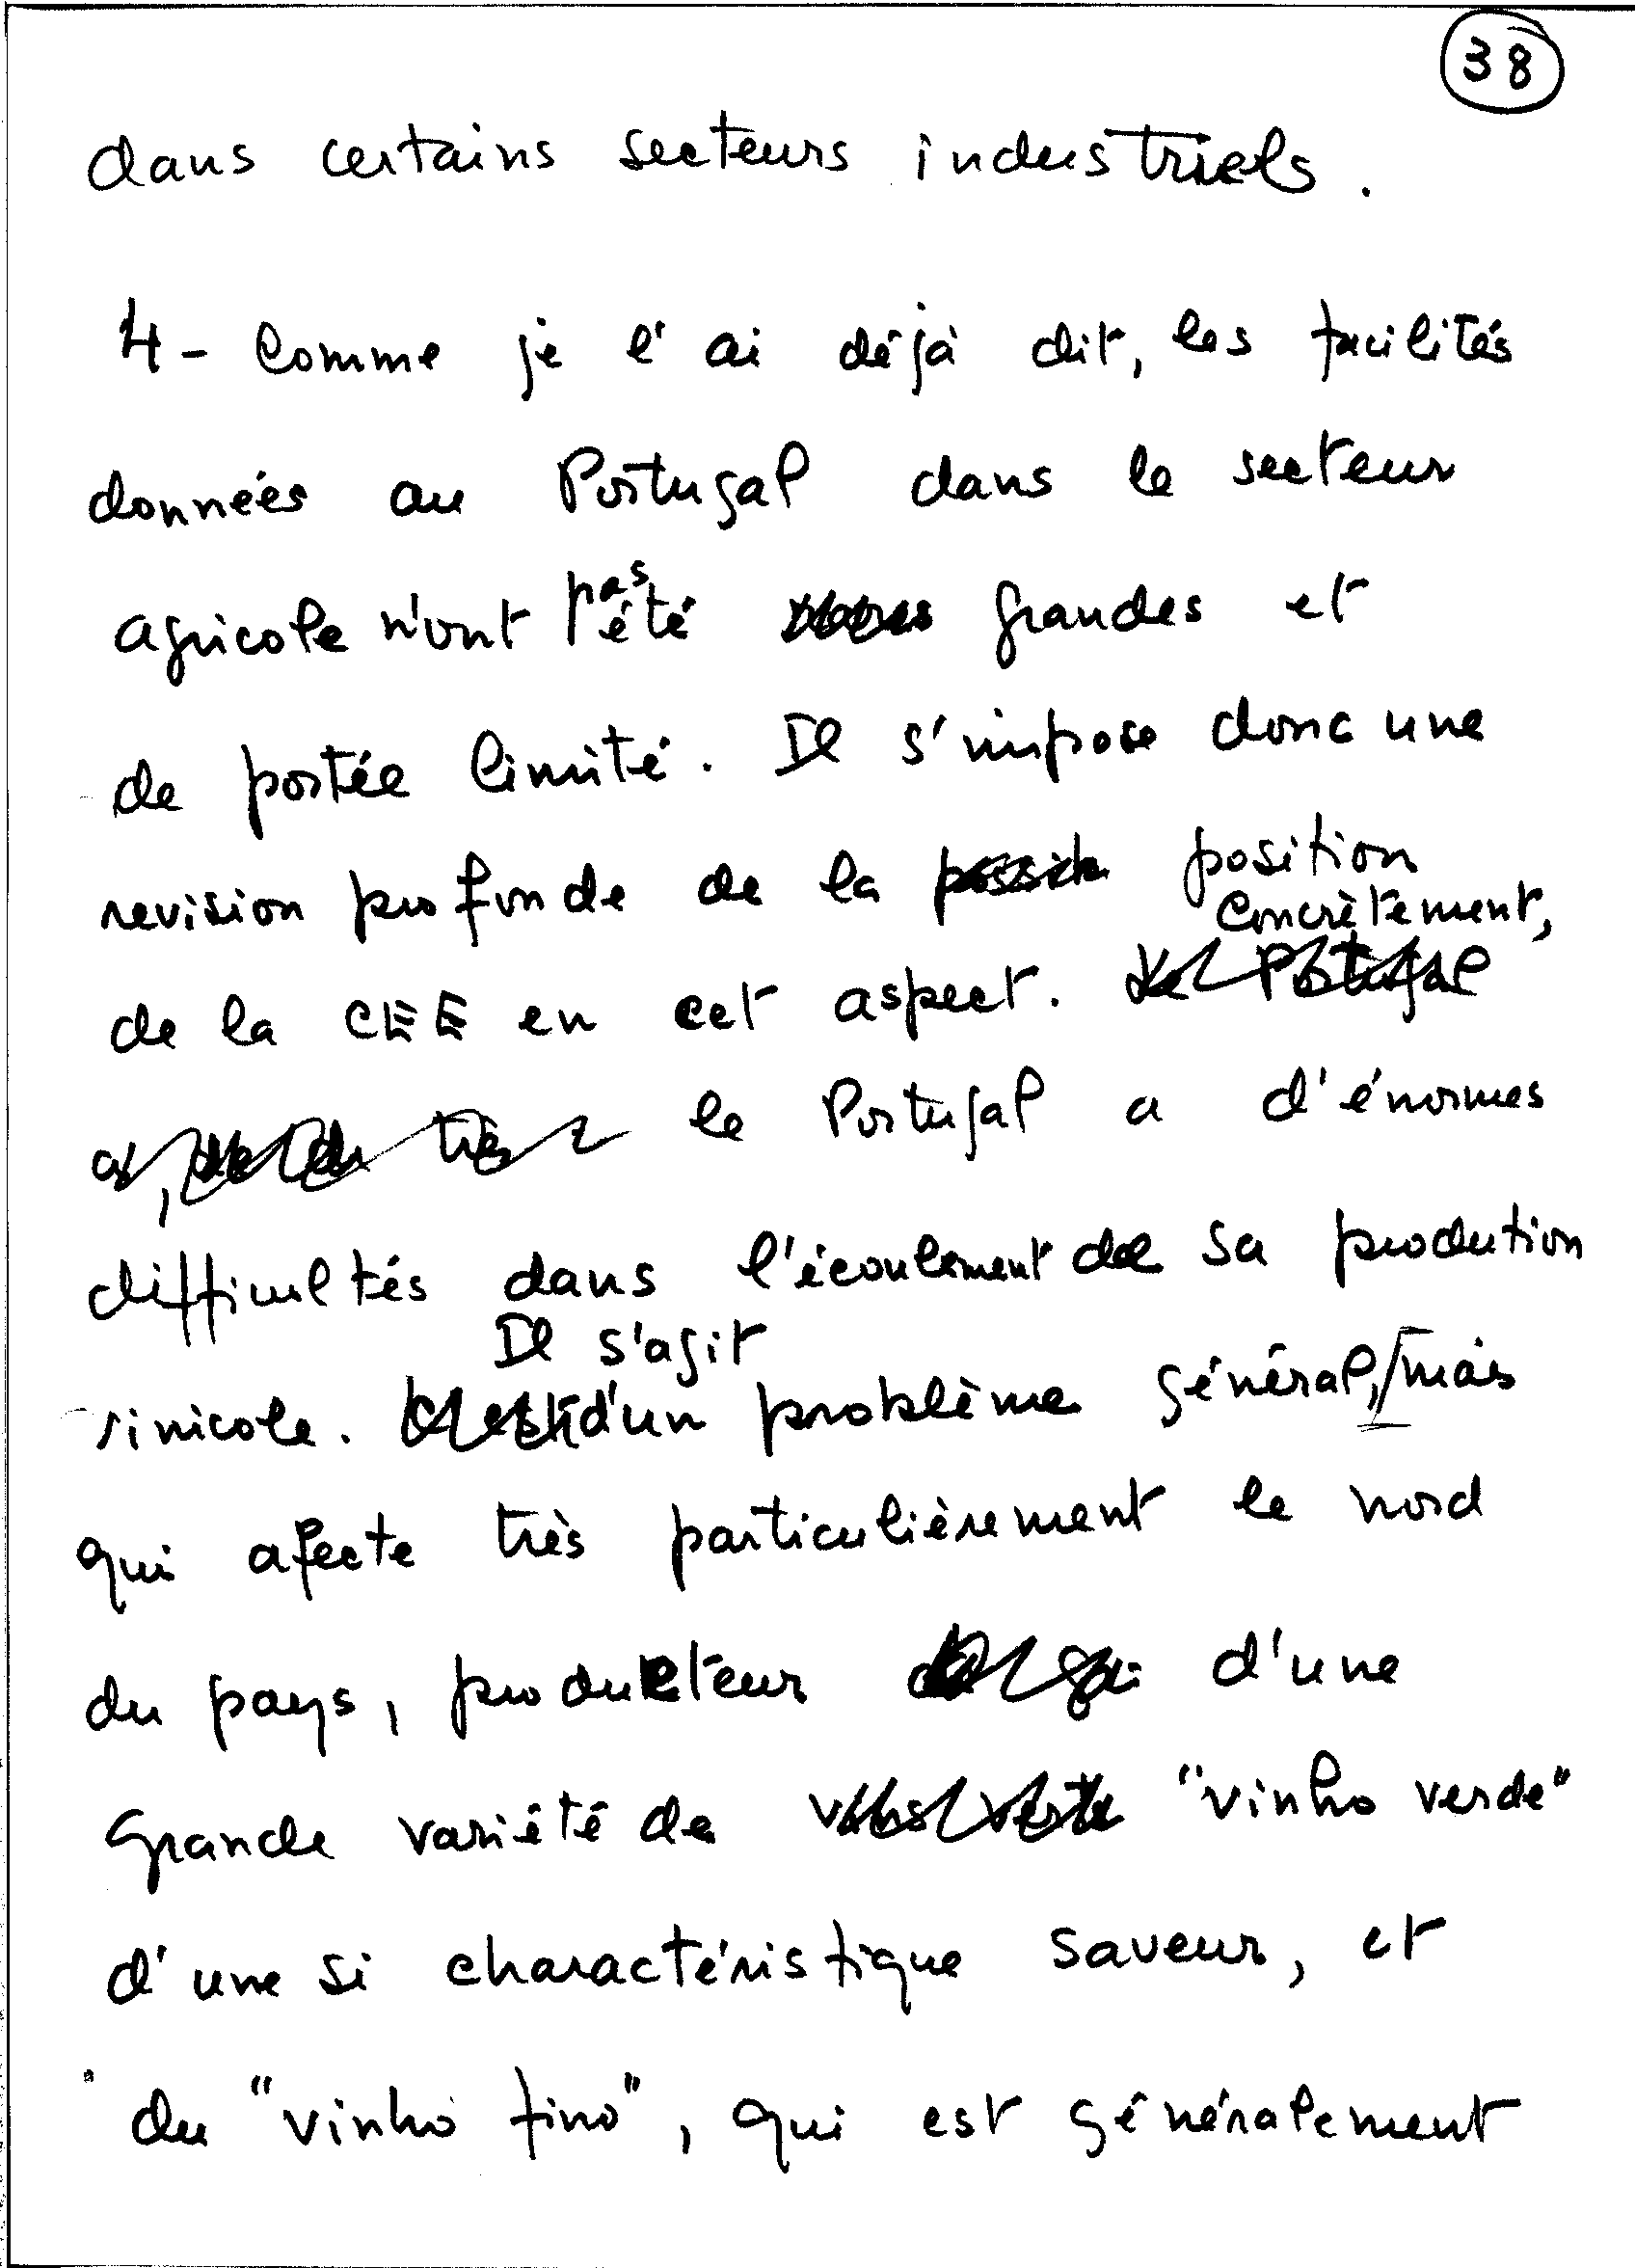 38
dans certains secteurs industriels.
4 - Comme je l'ai déjà dit, les facilités
données au Portugal dans le secteur
agricole n'ont pas été grandes et
de portée limité. Il s'impose donc une
revision profonde de la position
de la CEE en cet aspect. Concrètement,
le Portugal a d'énormes
difficultés dans l'écoulement de sa prodution
vinicole. Il s'agit d'un problème général, mais
qui afecte très particulièrement le nord
du pays, producteur d'une
grande variété de "vinho verde"
d'une si charactéristique saveur, et
du "vinho fino", qui est généralement